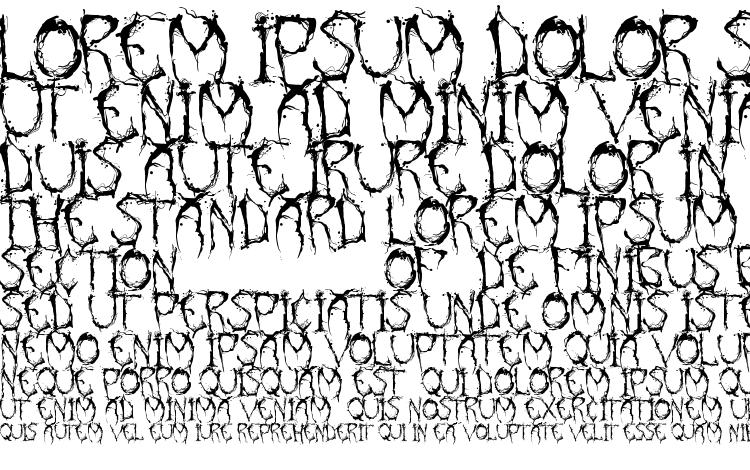 LOREM IPSUM DOLOR S
UT ENIM AD MINIM VENIA
DUIS AUTE IRURE DOLOR IN
THE STANDARD LOREM IPSUM
SECTION OF DE FINIBUS B
SED UT PERSPICIATIS UNDE OMNIS ISTE
NEMO ENIM IPSAM VOLUPTATEM QUIA VOLUP
NEQUE PORRO QUISQUAM EST QUI DOLOREM IPSUM QU
UT ENIM AD MINIMA VENIAM QUIS NOSTRUM EXERCITATIONEM U
QUIS AUTEM VEL EUM IURE REPREHENDERIT QUI IN EA VOLUPTATE VELIT ESSE QUAM NI